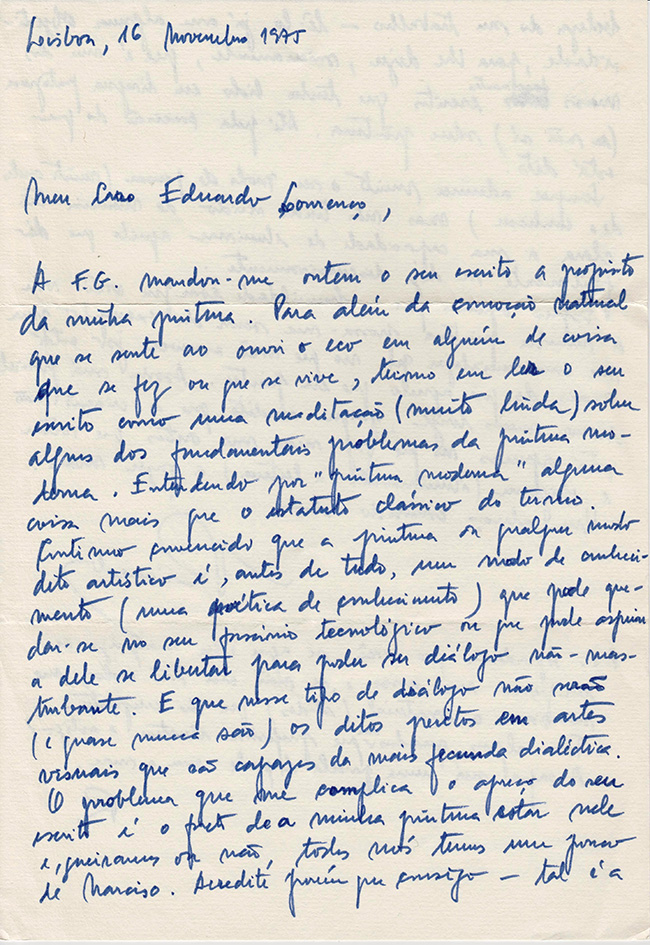 Lisboa, 16 Novembro 1975
Meu Caro Eduardo Lourenço,
A F.G. mandou-me ontem o seu escrito a propósito
da minha pintura. Para além da emoção natural
que se sente ao ouvir o eco em alguém de coisa
que se fez ou que se vive, teimo em ler o seu
escrito como uma meditação (muito linda) sobre
alguns dos fundamentais problemas da pintura mo-
derna. Entendendo por "pintura moderna" alguma
coisa mais que o estatuto clássico do termo.
Continuo convencido que a pintura ou qualquer modo
dito artístico é, antes de tudo, um modo de conheci-
mento (uma poética de conhecimento) que pode que-
dar-se no seu fusório tecnológico ou que pode aspirar
a dele se libertar para poder ser diálogo não-mas-
turbante. E que nesse tipo de diálogo não serão
(e quase nunca são) os ditos peritos em artes
visuais que são capazes da mais fecunda dialéctica.
O problema que me complica o apreço do seu
escrito é o facto de a minha pintura estar nele
e, queiramos ou não, todos nós temos um pouco
de Narciso. Acredite porém que consigo — tal é a